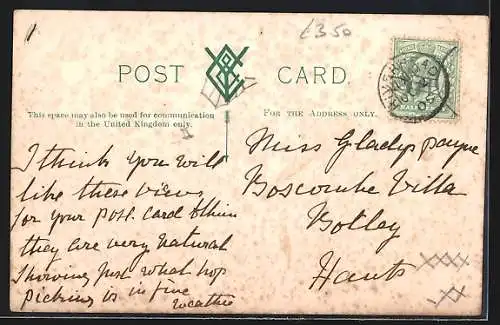 £3.50
POST CARD
This space may also be used for communication
in the United Kingdom only.
FOR THE ADDRESS ONLY.
I think you will
like these views
for your post card
they are very natural
showing just what hop
picking is in fine
weather
Miss Gladys Payne
Boscombe Villa
Botley
Hants
xxxx
xx